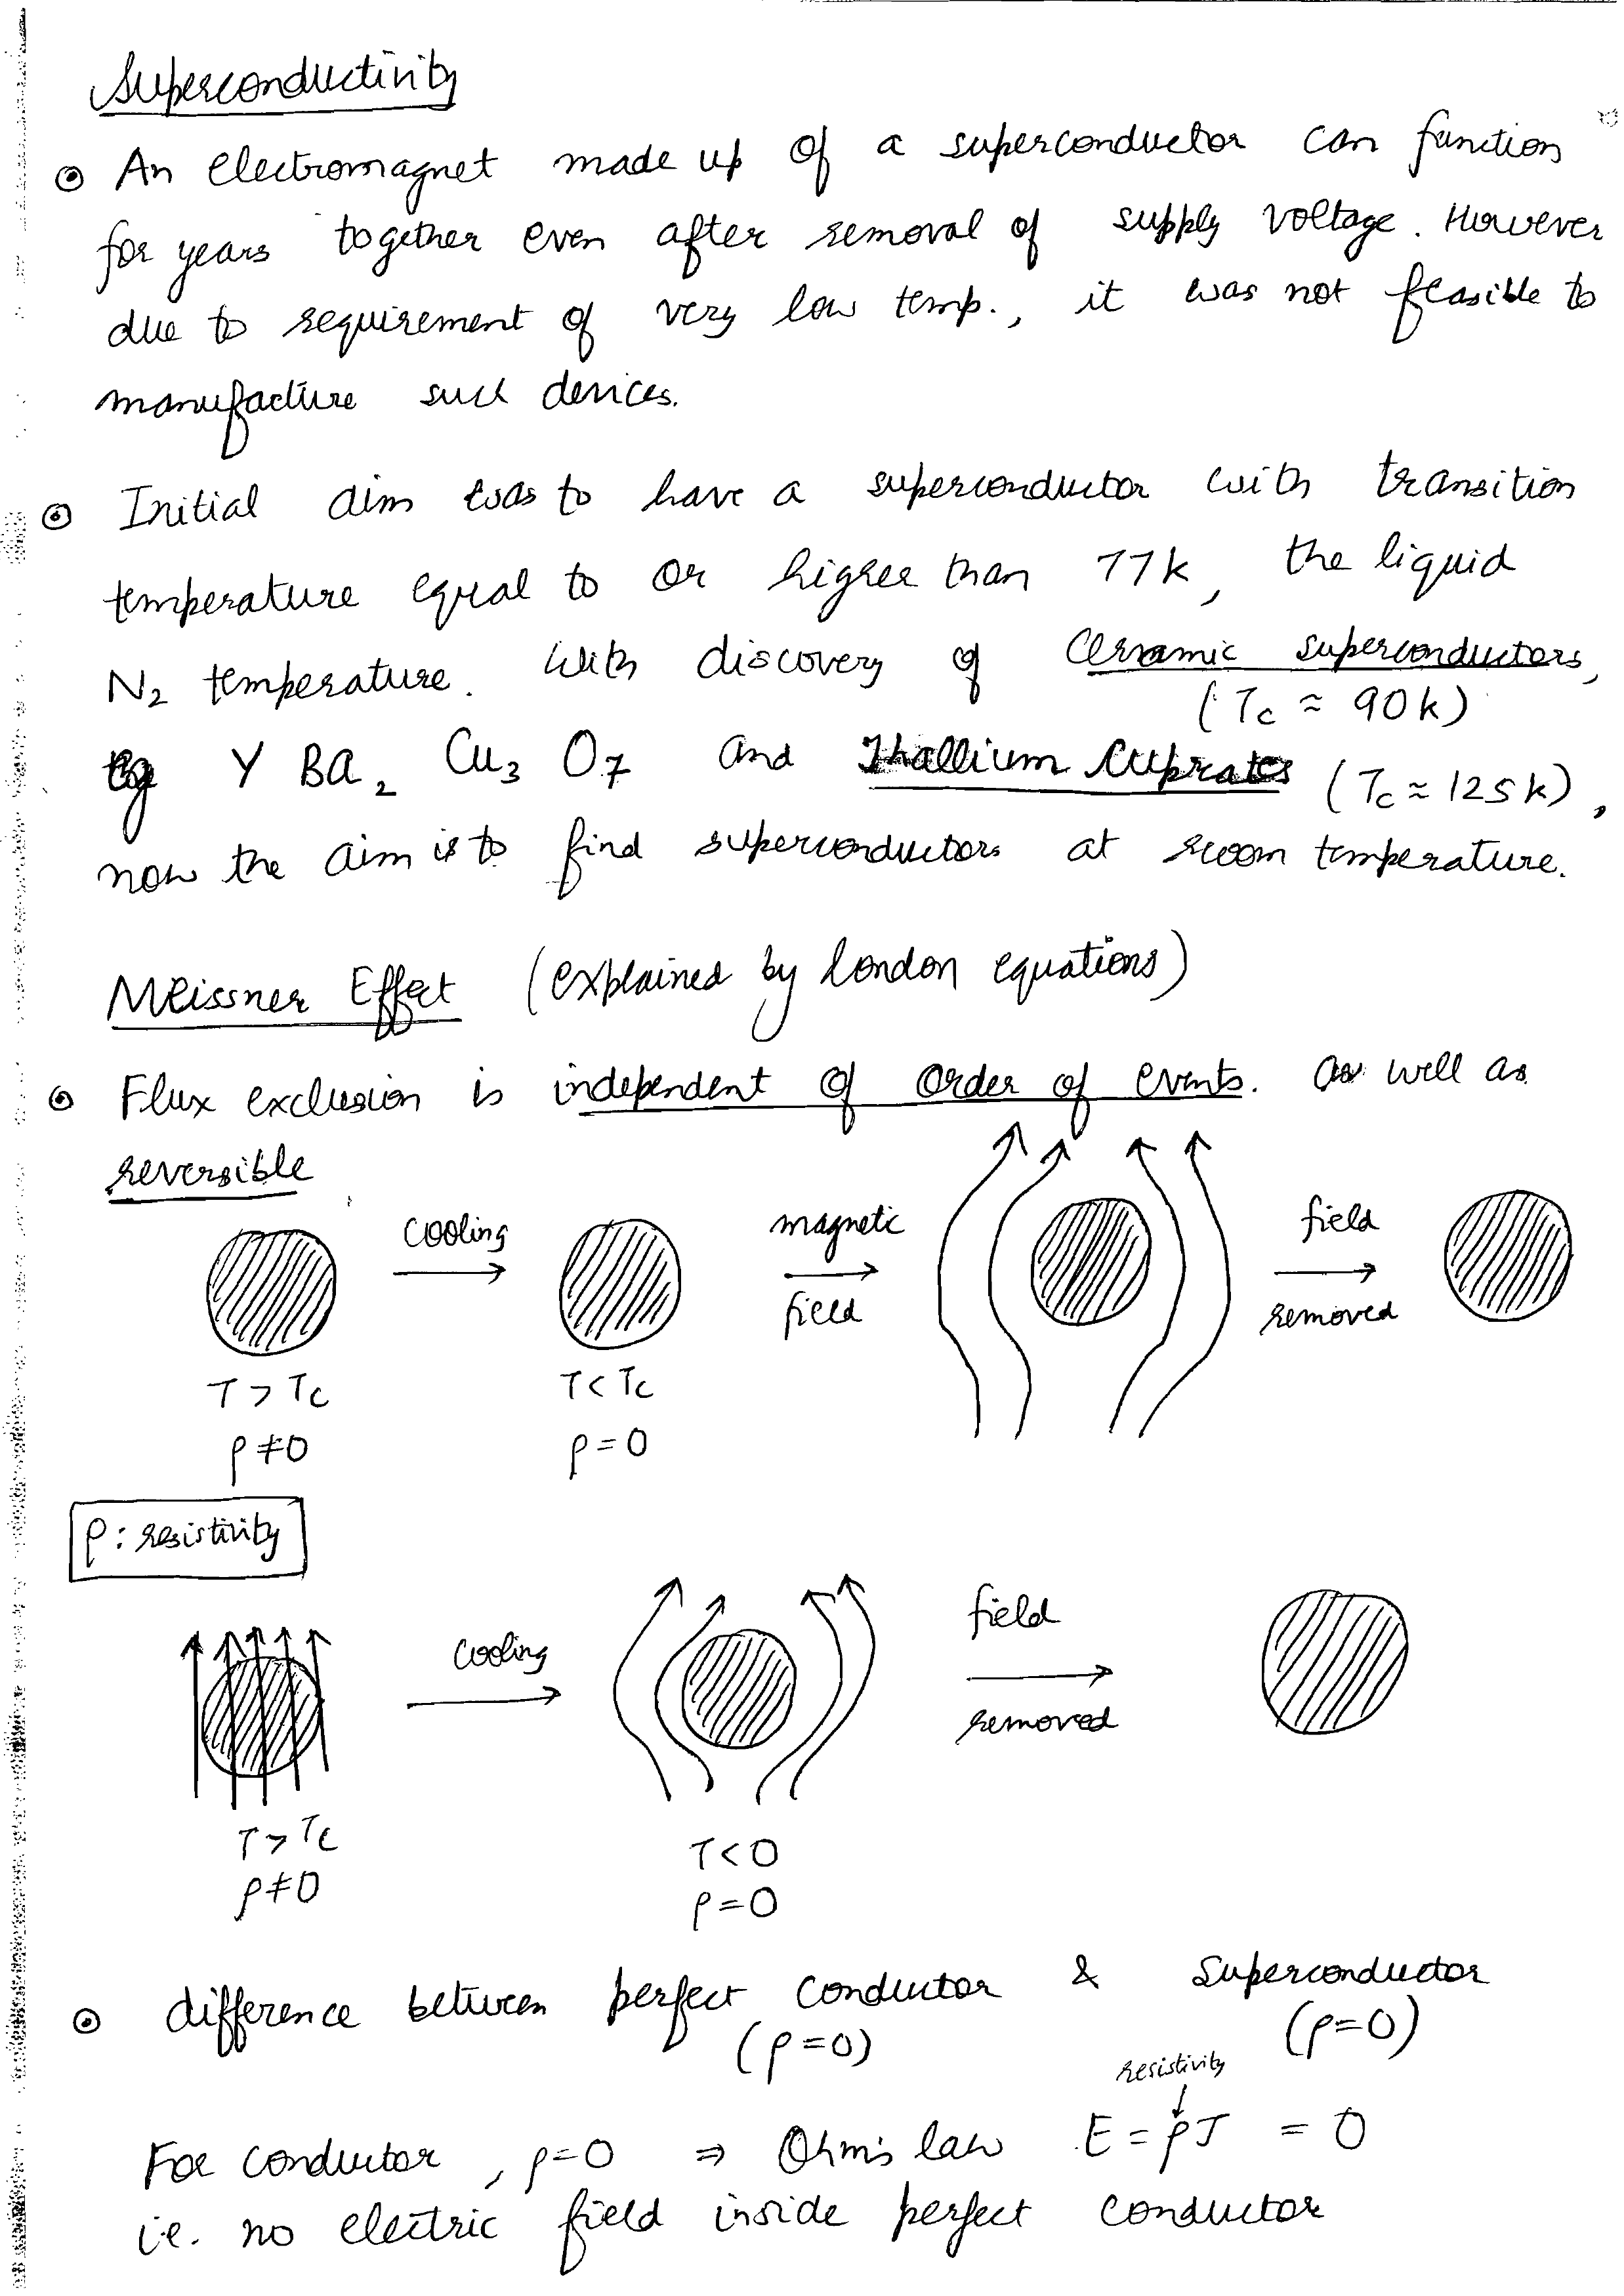 Superconductivity
⊙ An electromagnet made up of a superconductor can function
for years together even after removal of supply voltage. However
due to requirement of very low temp., it was not feasible to
manufacture such devices.
⊙ Initial aim was to have a superconductor with transition
temperature equal to or higher than 77k, the liquid
N₂ temperature. With discovery of Ceramic superconductors,
(Tc ≈ 90k)
eg Y Ba₂ Cu₃ O₇ and Thallium Cuprates (Tc ≈ 125k),
now the aim is to find superconductors at room temperature.
Meissner Effect (explained by London equations)
⊙ Flux exclusion is independent of order of events. as well as
reversible
cooling magnetic field field removed
T > Tc T < Tc
ρ ≠ 0 ρ = 0
ρ : resistivity
cooling field removed
T > Tc T < 0
ρ ≠ 0 ρ = 0
⊙ difference between perfect conductor & Superconductor
(ρ = 0) (ρ = 0)
resistivity
For conductor, ρ = 0 ⇒ Ohm's law E = ρJ = 0
i.e. no electric field inside perfect conductor